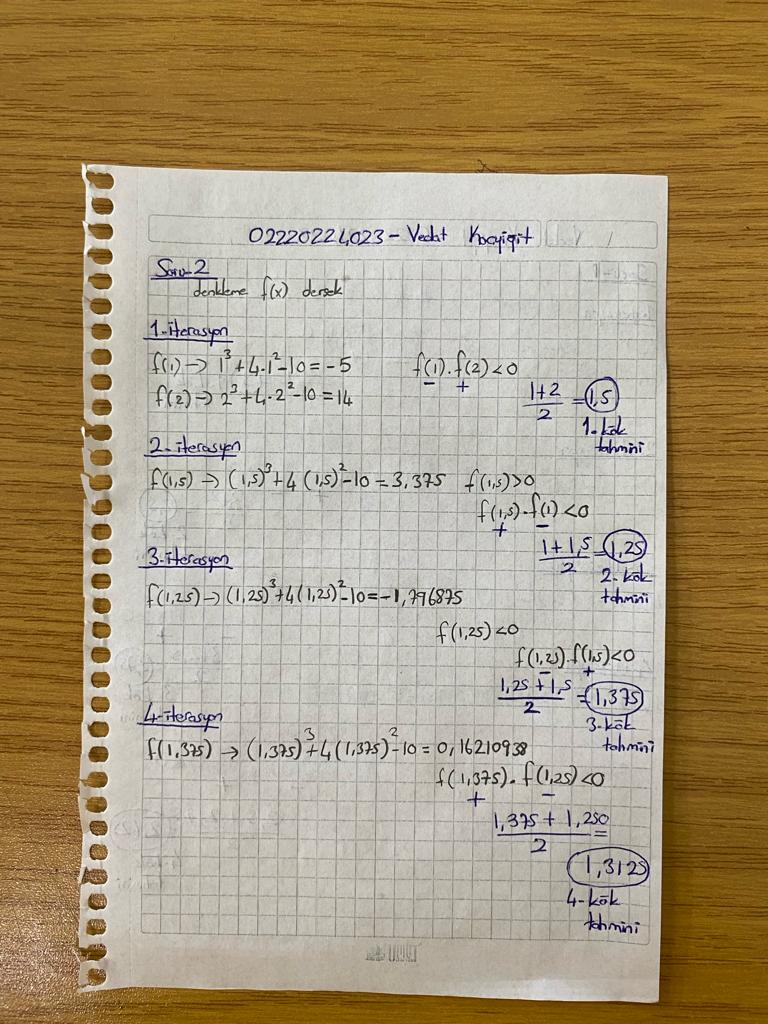 02220224023 - Vedat Koçyiğit
Soru-2
denkleme f(x) dersek
1-iterasyon
f(1) → 1³+4.1²-10 = -5 f(1).f(2)<0
- +
f(2) → 2³+4.2²-10 = 14
1+2/2 = 1,5
1-kök
tahmini
2-iterasyon
f(1,5) → (1,5)³+4(1,5)²-10 = 3,375 f(1,5)>0
f(1,5).f(1)<0
+ -
1+1,5/2 = 1,25
2-kök
tahmini
3-iterasyon
f(1,25) → (1,25)³+4(1,25)²-10 = -1,796875
f(1,25)<0
f(1,25).f(1,5)<0
- +
1,25+1,5/2 = 1,375
3-kök
tahmini
4-iterasyon
f(1,375) → (1,375)³+4(1,375)²-10 = 0,16210938
f(1,375).f(1,25)<0
+ -
1,375 + 1,250/2 =
1,3125
4-kök
tahmini